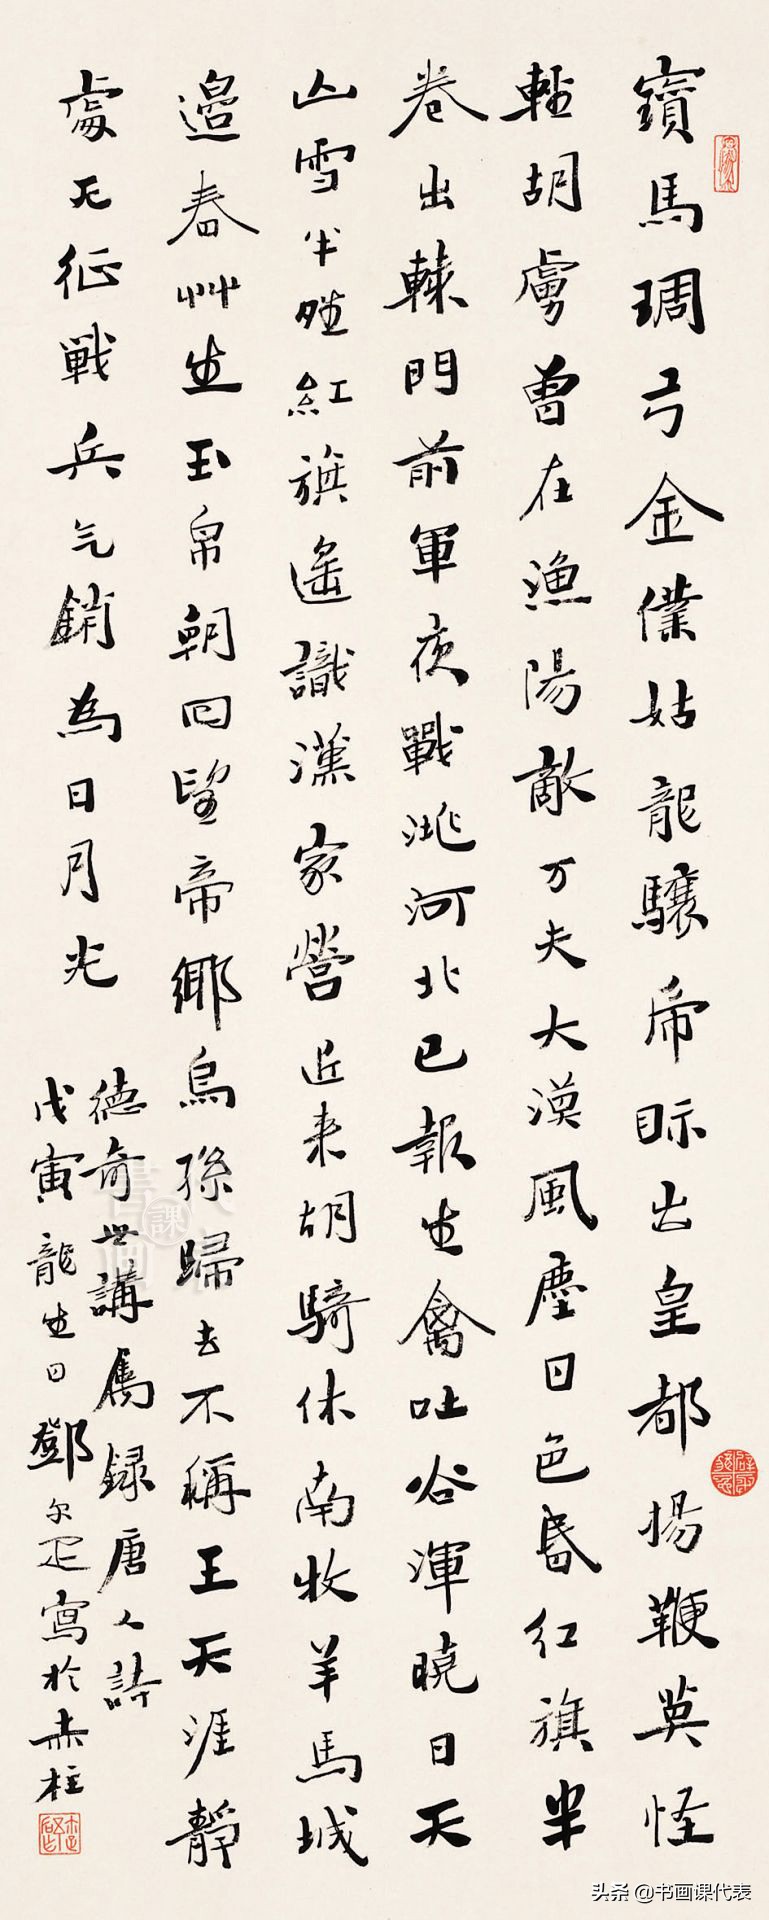 寶馬琱弓金僕姑龍驤虎眎出皇都揚鞭莫怪
輕胡虜曾在漁陽敵万夫大漠風塵日色昏红旗半
卷出轅門前軍夜戰洮河北已報生禽吐谷渾曉日天
山雪半晴紅旗遙識漢家營近来胡騎休南牧羊馬城
邊春艸生玉帛朝回望帝鄉烏孫歸去不稱王天涯靜
處无征戰兵气銷為日月光
德奇世講屬録唐人詩
戊寅龍生日鄧尔疋寫於赤柱
头条 @书画课代表